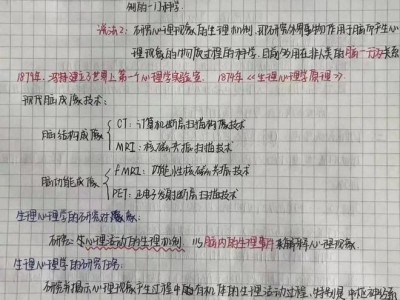 侧的一门科学.
说法2: 研究心理现象的生理机制, 即研究外界事物作用于脑而产生心
理现象的物质过程的科学. 目前多用在非人类的脑一行为关系
1879年, 冯特建立了世界上第一个心理学实验室. 1874年《生理心理学原理》.
现代脑成像技术:
脑结构成像
CT: 计算机断层扫描构像技术
MRI: 核磁共振扫描技术
脑功能成像
fMRI: 功能性核磁共振技术
PET: 正电子发射断层扫描技术
生理心理学的研究对象:
研究心理活动的生理机制, 以脑内的生理事件来解释心理现象.
生理心理学的研究任务:
研究并揭示心理现象产生过程中有机体的生理活动过程, 特别是中枢神经